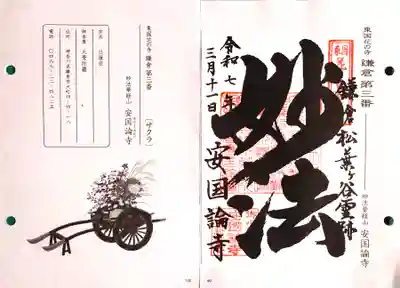 東国花の寺 鎌倉 第三番
妙法華経山 安国論寺
鎌倉松葉ヶ谷霊跡
妙法
令和七年
三月十日
安国論寺
東国花の寺 鎌倉 第三番
(ザクラ)
妙法華経山 安国論寺
宗派 日蓮宗
御本尊 大曼荼羅
住所 神奈川県鎌倉市大町四-四-一八
〇四六七-二二-四八二五